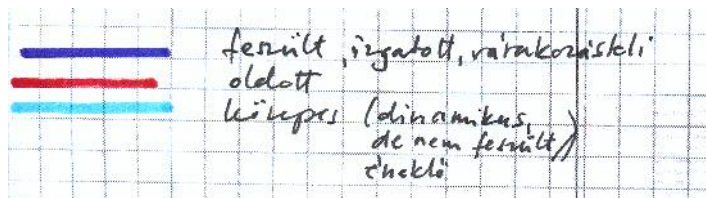 feszült, izgatott, várakozásteli
oldott
közepes (dinamikus,
de nem feszült)
éneklő